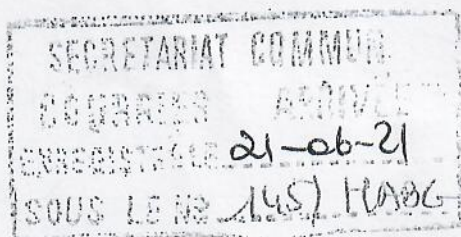 SECRETARIAT COMMUN
COURRIER ARRIVEE
ENREGISTRE LE 21-06-21
SOUS LE Nº 145/ HABG